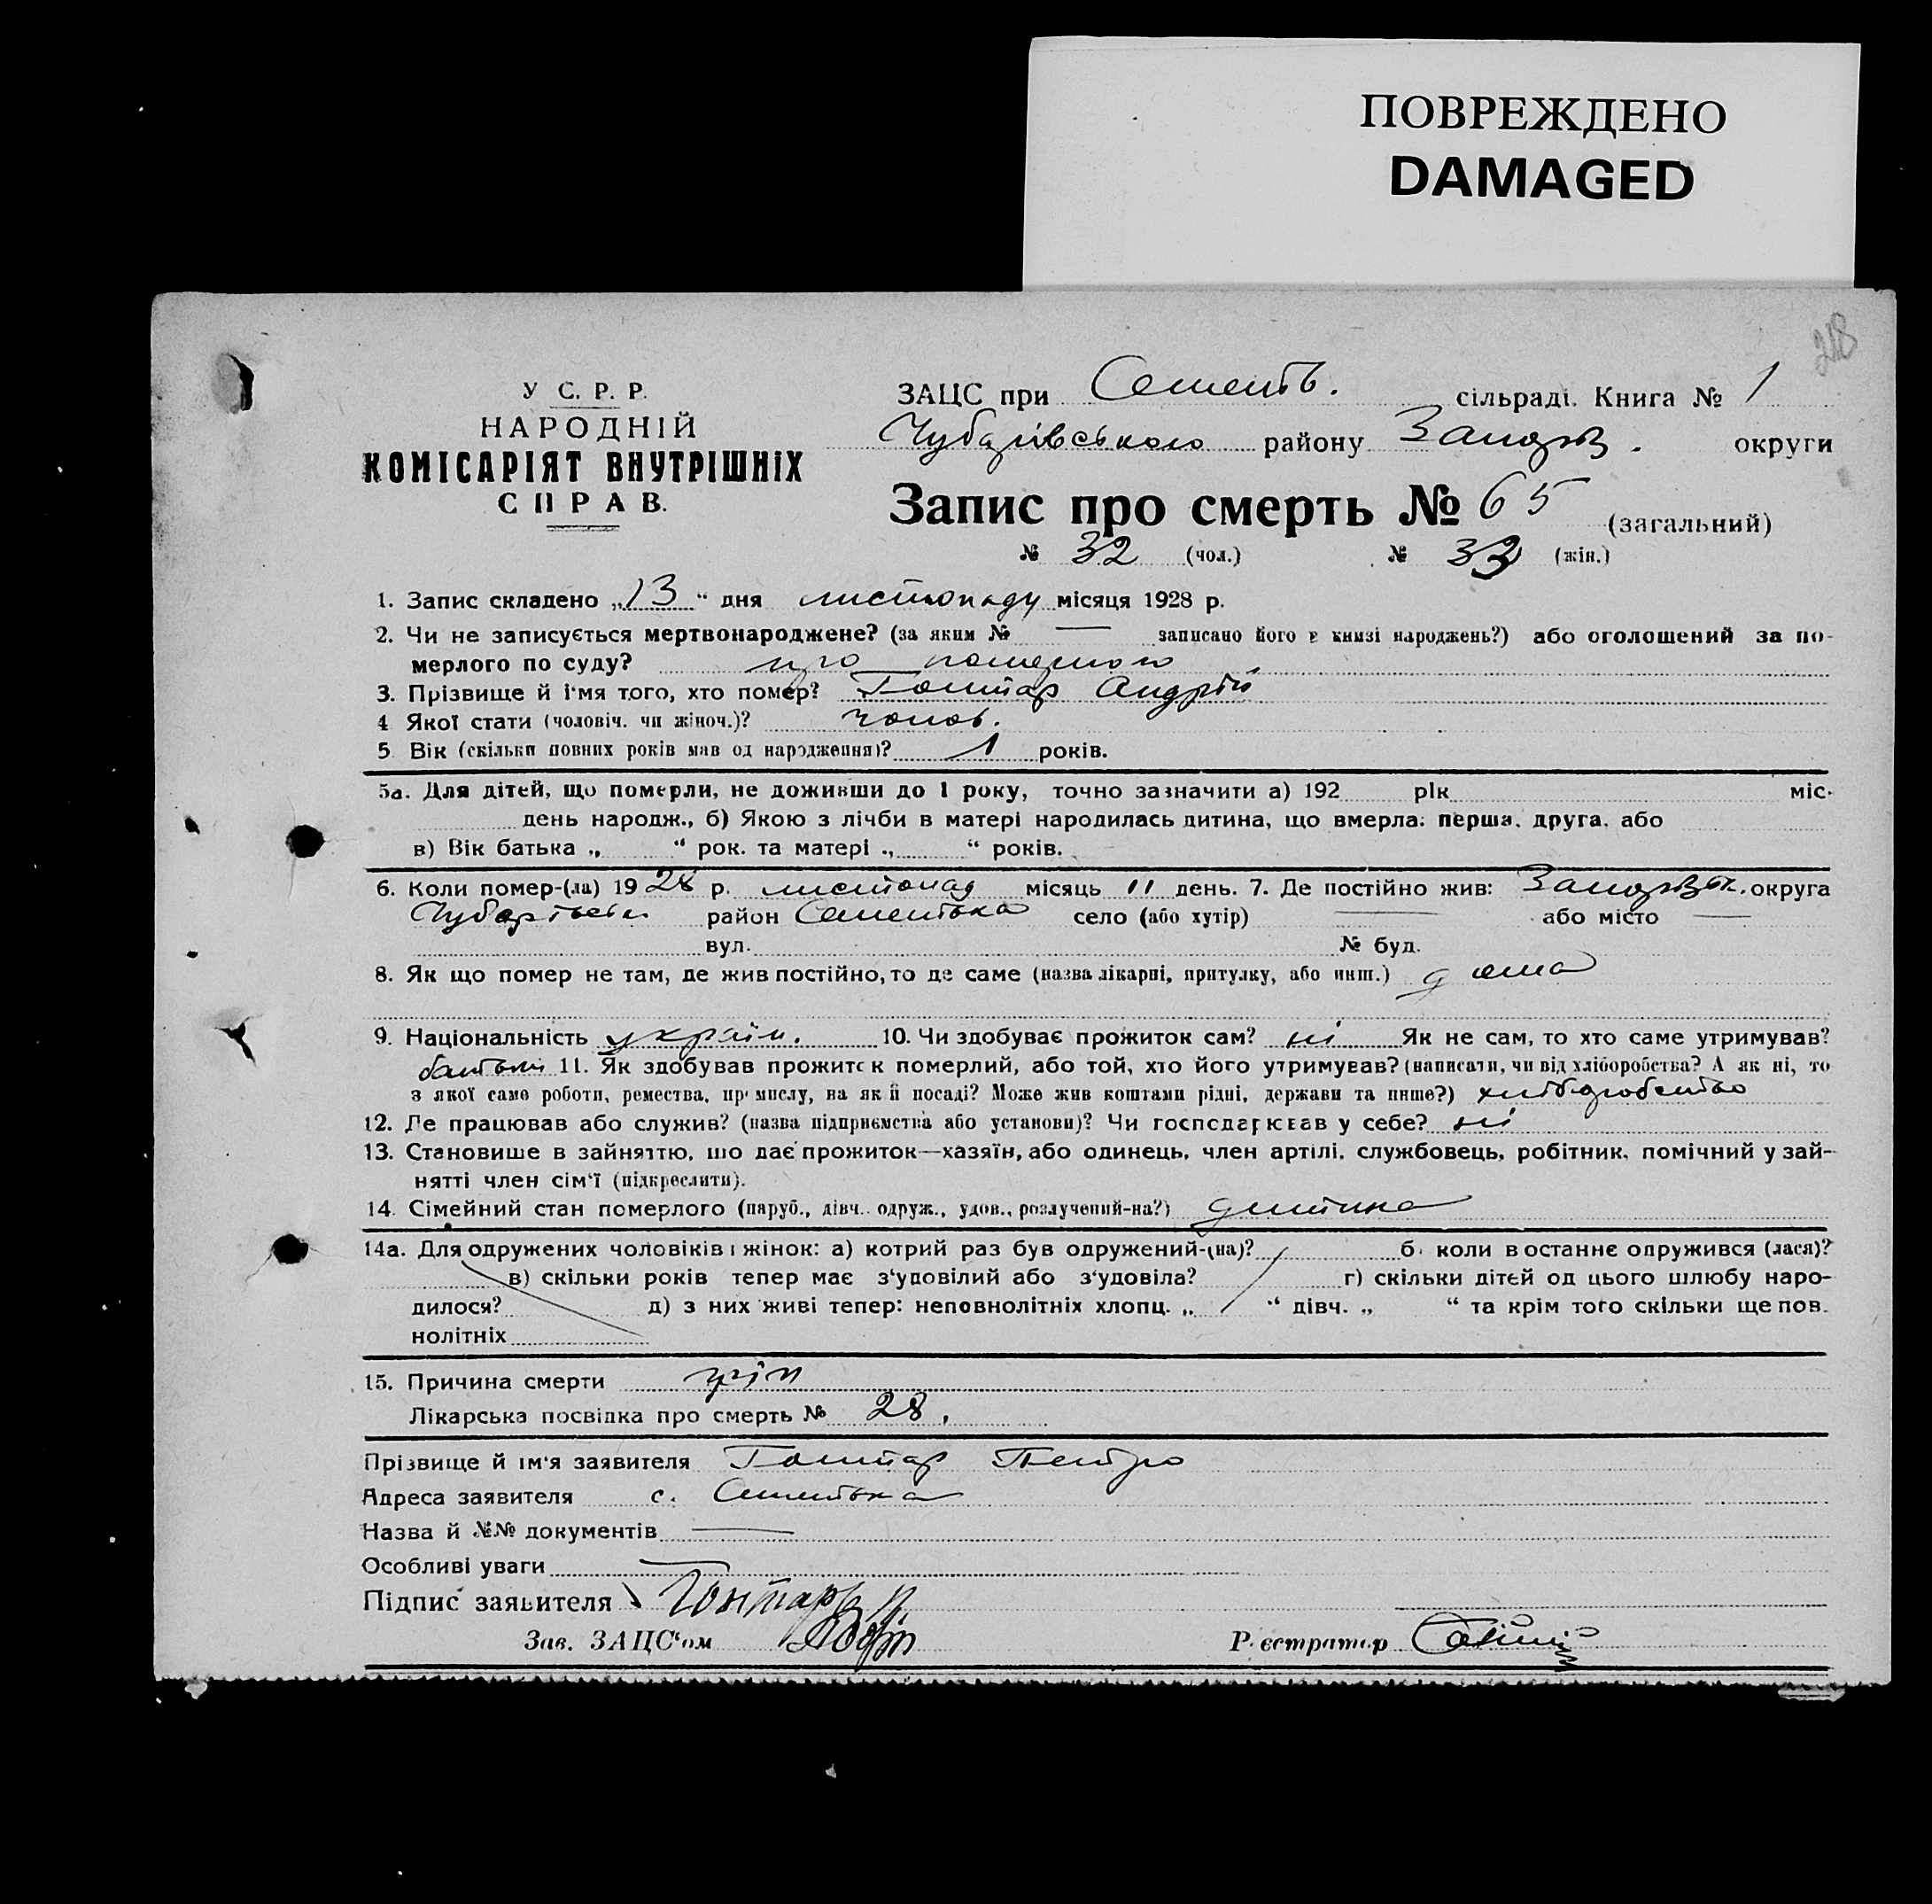 ПОВРЕЖДЕНО
DAMAGED
218
У С. Р. Р.
НАРОДНІЙ
КОМІСАРІЯТ ВНУТРІШНІХ
СПРАВ.
ЗАЦС при Семенів. сільраді. Книга № 1
Чубарівського району Запоріз. округи
Запис про смерть № 65 (загальний)
№ 32 (чол.) № 33 (жін.)
1. Запис складено „13“ дня листопаду місяця 1928 р.
2. Чи не записується мертвонароджене? (за яким № — записано його в книзі народжень?) або оголошений за по-
мерлого по суду? про померлого
3. Прізвище й ім'я того, хто помер? Гонтар Андрій
4 Якої стати (чоловіч. чи жіноч.)? чолов.
5 Вік (скільки повних років мав од народження)? 1 років.
5а. Для дітей, що померли, не доживши до 1 року, точно зазначити а) 192 рік міс.
день народж., б) Якою з лічби в матері народилась дитина, що вмерла: перша, друга, або
в) Вік батька „ “ рок. та матері „ “ років.
6. Коли помер-(ла) 1928 р. листопад місяць 11 день. 7. Де постійно жив: округа
район село (або хутір) — або місто —
вул. № буд.
8. Як що помер не там, де жив постійно, то де саме (назва лікарні, притулку, або инш.) дома
9. Національність україн. 10. Чи здобуває прожиток сам? ні Як не сам, то хто саме утримував?
батьки 11. Як здобував прожиток померлий, або той, хто його утримував? (написати, чи від хліборобства? А як ні, то
з якої саме роботи, ремества, промислу, на якій посаді? Може жив коштами рідні, держави та инше?) хліборобство
12. Де працював або служив? (назва підприємства або установи)? Чи господарював у себе? ні
13. Становише в зайняттю, що дає прожиток—хазяїн, або одинець, член артілі, службовець, робітник, помічний у зай-
нятті член сім'ї (підкреслити).
14. Сімейний стан померлого (паруб., дівч. одруж., удов., розлучений-на?) дитина
14а. Для одружених чоловіків і жінок: а) котрий раз був одружений-(на)? б. коли востаннє одружився (лася)?
в) скільки років тепер має з'удовілий або з'удовіла? г) скільки дітей од цього шлюбу наро-
дилося? д) з них живі тепер: неповнолітніх хлопц. „ “ дівч. „ “ та крім того скільки ще пов.
нолітніх
15. Причина смерти гріп
Лікарська посвідка про смерть № 28.
Прізвище й ім'я заявителя Гонтар Петро
Адреса заявителя с.
Назва й №№ документів —
Особливі уваги —
Підпис заявителя Гонтарь П.
Зав. ЗАЦС'ом
Реєстратор